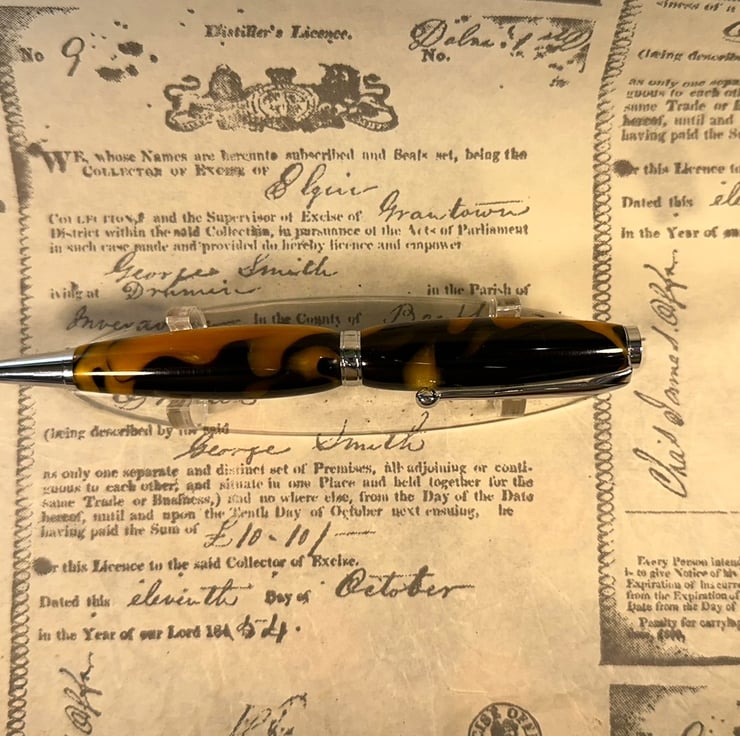 No 9
Distiller's Licence.
No.
WE, whose Names are hereunto subscribed and Seals set, being the
COLLECTOR OF EXCISE OF Elgin
COLLECTION, and the Supervisor of Excise of Grantown
District within the said Collection, in pursuance of the Acts of Parliament
in such case made and provided do hereby licence and empower
George Smith
living at Drumin in the Parish of
in the County of
(being described by the said
George Smith
as only one separate and distinct set of Premises, all adjoining or conti-
guous to each other, and situate in one Place and held together for the
same Trade or Business,) and no where else, from the Day of the Date
hereof, until and upon the Tenth Day of October next ensuing, he
having paid the Sum of £10-10/
for this Licence to the said Collector of Excise.
Dated this eleventh Day of October
in the Year of our Lord 18
(being describ
as only one sepa
guous to each ot
same Trade or B
hereof, until and
having paid the S
or this Licence to
Dated this ele
in the Year of
Every Person inten
to give Notice of his
Expiration of his curre
from the Expiration of
Date from the Day of
Penalty for carryin